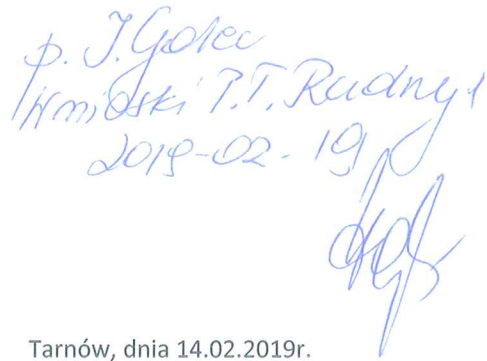 p. J. Golec
Wnioski P.T. Radnych
2019-02-19
Tarnów, dnia 14.02.2019r.